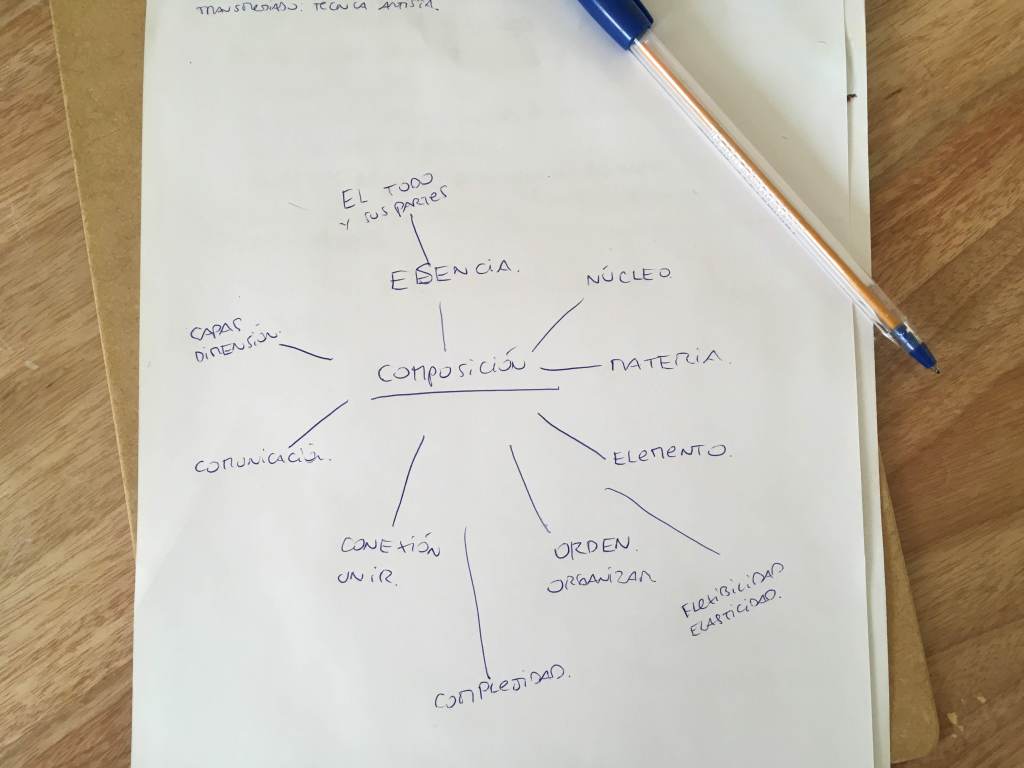 TÉCNICA ARTISTA.
EL TODO
Y SUS PARTES
ESENCIA.
NÚCLEO
CAPAS
DIMENSIÓN.
COMPOSICIÓN
MATERIA.
COMUNICACIÓN.
ELEMENTO.
CONEXIÓN
UNIR.
ORDEN.
ORGANIZAR
FLEXIBILIDAD
ELASTICIDAD.
COMPLEJIDAD.